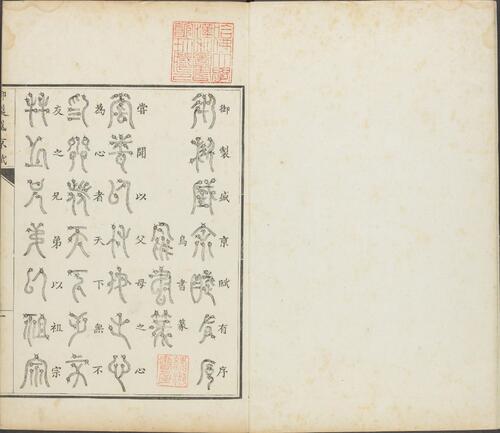 御製盛京賦有序
鳥書篆
嘗聞以父母之心
為心者天下無不
友之兄弟以祖宗